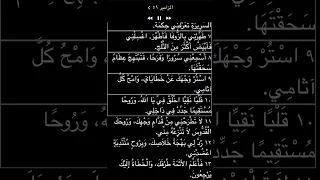 المزامير ٥١
السريرة تعرفني حكمة.
٧ طهرني بالزوفا فأطهر. اغسلني
فأبيض أكثر من الثلج.
٨ أسمعني سرورا وفرحا، فتبتهج عظام
سحقتها.
٩ استر وجهك عن خطاياي، وامح كل
آثامي.
١٠ قلبا نقيا اخلق في يا الله، وروحا
مستقيما جدد في داخلي.
١١ لا تطرحني من قدام وجهك، وروحك
القدوس لا تنزعه مني.
١٢ رد لي بهجة خلاصك، وبروح منتدبة
اعضدني.
١٣ فأعلم الأثمة طرقك، والخطاة إليك
يرجعون.